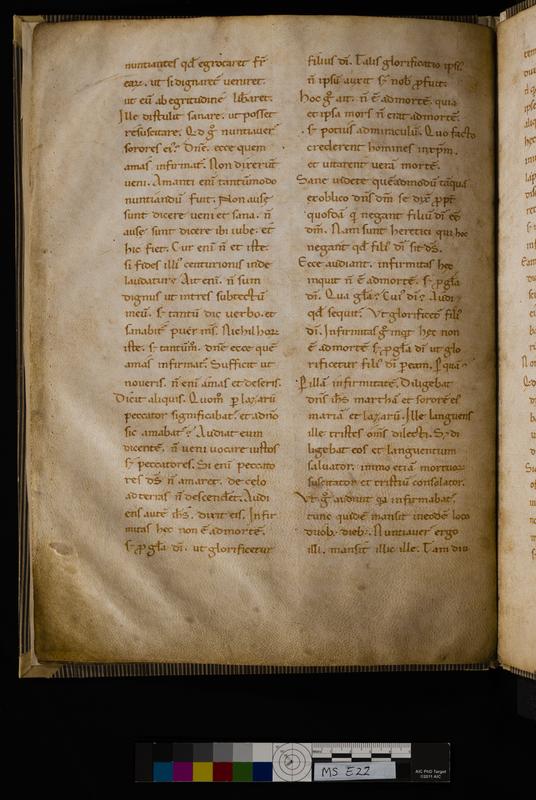 nuntiantes qđ egrotaret fr̄
earꝝ. ut si dignaret̄ veniret.
ut eū ab egritudinē lib̄aret.
Ille distulit sanare. ut posset
resuscitare. Qd ḡ nuntiauer̄
sorores ei᾽? Dnē. ecce quem
amas infirmat̄. Non dixerūt
veni. Amanti enī tantūmodo
nuntiandū fuit. Non ausę
sunt dicere veni et sana. n̄
ausę sunt dicere ibi iube. et
hic fiet. Cur enī n̄ et istę.
si fides illi᾽ centurionis inde
laudatur? Ait enī. n̄ sum
dignus ut intres sub tectū
meū. s; tantū dic verbo. et
sanabit᾽ puer ms̄. Nichil horꝝ
istę. s; tantūm. dnē ecce quē
amas infirmat̄. Sufficit ut
noueris. n̄ enī amas et deseris.
Dicit aliquis. Quom̄ p lazarū
peccator significabat᾽. et a dn̄o
sic amabat᾽? Audiat eum
dicentē. n̄ veni vocare iustos
s; peccatores. Si enī peccato
res ds̄ n̄ amaret. de celo
ad terras n̄ descendet̄. Audi
ens autē ih̄s. dixit eis. Infir
mitas hec non ē ad mortē.
s; ꝓ gła dī. ut glorificetur
filius dī. Talis glorificatio ipsi᾽
n̄ ipsū auxit s; nob̄ ꝓfuit.
Hoc ḡ ait. n̄ ē ad mortē. quia
et ipsa mors n̄ erat ad mortē.
s; potius ad miraculū. Quo facto
crederent homines in xp̄m.
et vitarent verā mortē.
Sane videte quēadmodū tāqua
ex obliquo dn̄s dm̄ se dix̄ ꝓpt̄
quosdā q̇ negant filiū dī eē
dm̄. Nam sunt heretici qui hoc
negant qđ fili᾽ dī sit ds̄.
Ecce audiant. infirmitas hec
inquit n̄ ē ad mortē. s; ꝓ gła
dī. Qua gła? Cui᾽ dī? Audi
qđ sequit᾽. Ut glorificet᾽ fili᾽
dī. Infirmitas ḡ inqt hec non
ē ad mortē s; ꝓ gła dī ut glo
rificetur fili᾽ dī p eam. P quā?
P illā infirmitatē. Diligebat
dn̄s ih̄s marthā et sororē ei᾽
mariā et lazarū. Ille languens
ille tristes om̄s dilecti. S; di
ligebat eos et languentium
saluator. immo etiā mortuoꝝ
suscitator et tristiū consolator.
Ut ḡ audiuit qa infirmabat᾽.
tunc quidē mansit in eodē loco
duob; dieb;. Nuntiauer̄ ergo
illi. mansit illic ille. Tam diu